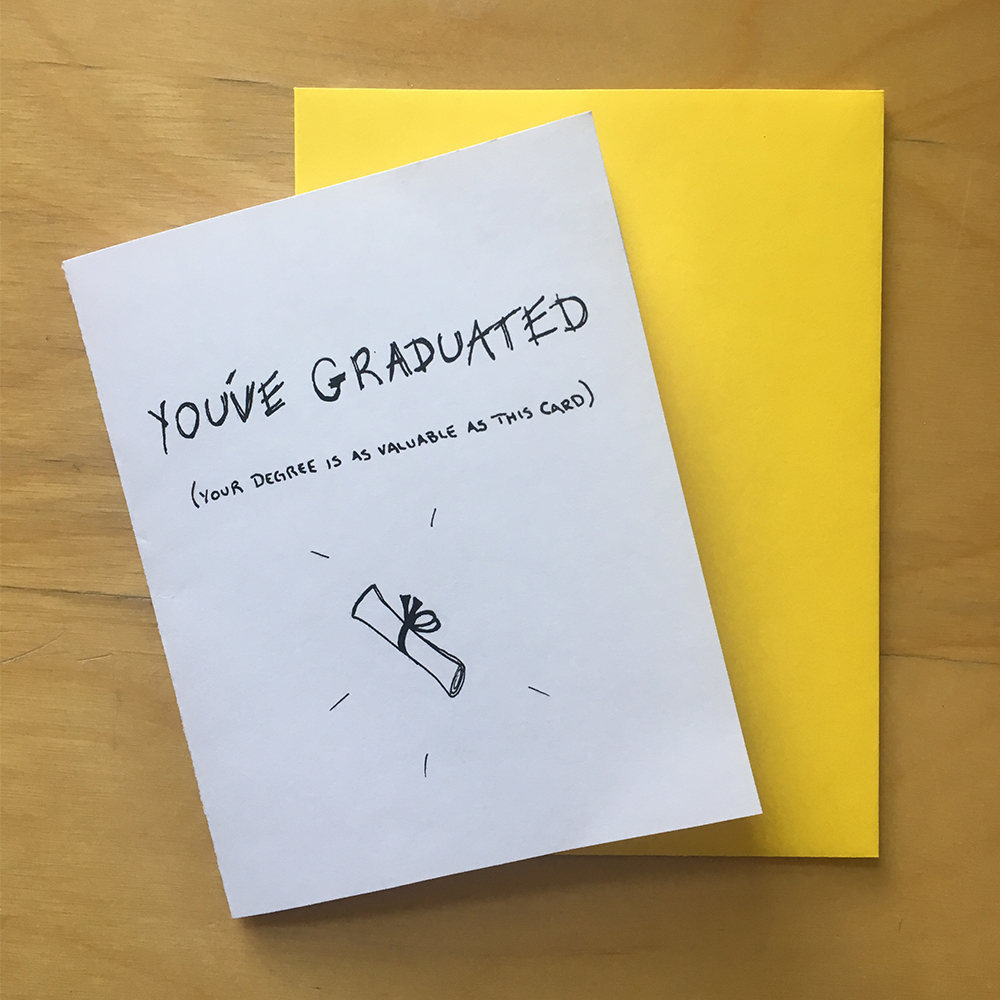 YOU'VE GRADUATED
(YOUR DEGREE IS AS VALUABLE AS THIS CARD)